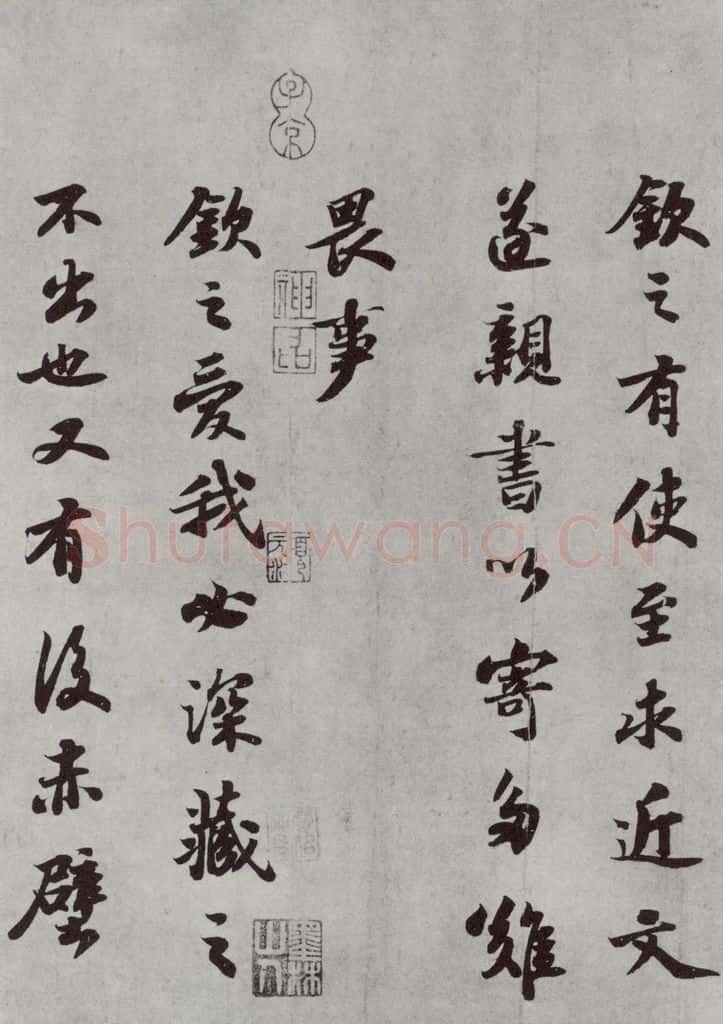 欽之有使至求近文
遂親書以寄多難
畏事
欽之愛我必深藏之
不出也又有後赤壁
子京
神品
墨林山人
Shufawang.CN